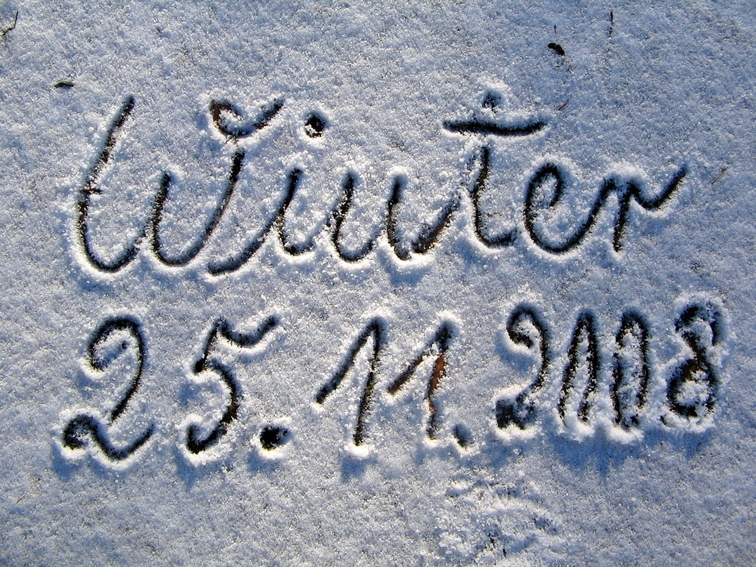 Winter
25.11.2008